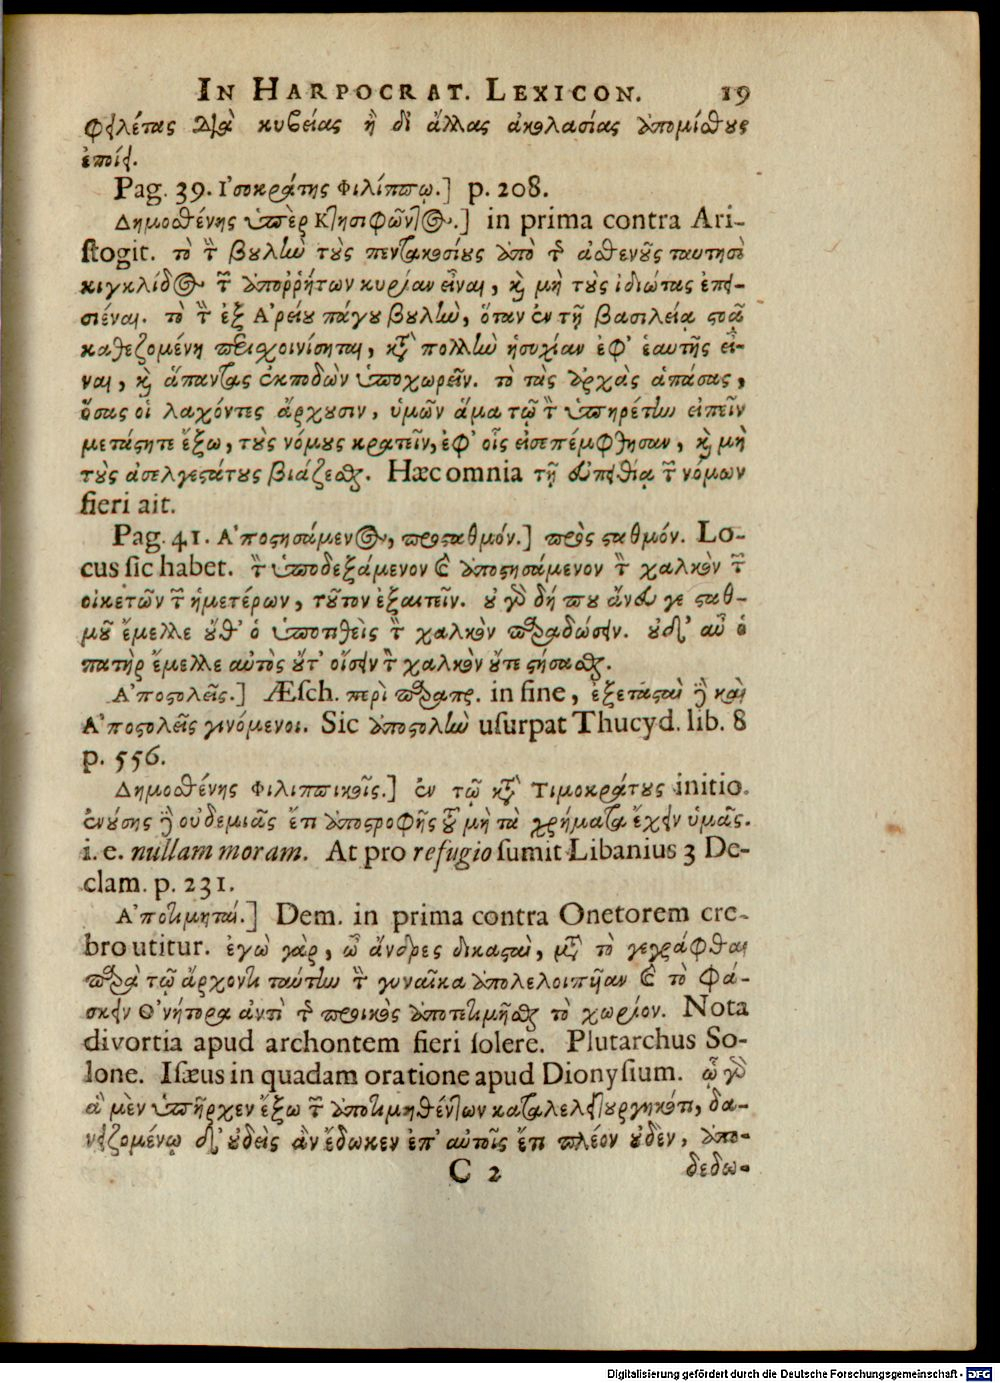 IN HARPOCRAT. LEXICON. 19
φειλέτας διὰ κυβείας ἢ δι' ἄλλας ἀκολασίας ἀπομίσθους
ἐποίει.
Pag. 39. Ἰσοκράτης Φιλίππῳ.] p. 208.
Δημοσθένης ὑπὲρ Κτησιφῶντος.] in prima contra Ari-
stogit. τὸ τὴν βουλὴν τοὺς πεντακοσίους ἀπὸ τῆς ἀσθενοῦς ταυτησὶ
κιγκλίδος τῶν ἀπορρήτων κυρίαν εἶναι, καὶ μὴ τοὺς ἰδιώτας ἐπει-
σιέναι. τὸ τὴν ἐξ Ἀρείου πάγου βουλὴν, ὅταν ἐν τῇ βασιλείᾳ στοᾷ
καθεζομένη περισχοινίσηται, κατὰ πολλὴν ἡσυχίαν ἐφ' ἑαυτῆς εἶ-
ναι, καὶ ἅπαντας ἐκποδὼν ὑποχωρεῖν. τὸ τὰς ἀρχὰς ἁπάσας,
ὅσας οἱ λαχόντες ἄρχουσιν, ὑμῶν ἅμα τῷ τὸν ὑπηρέτην εἰπεῖν
μετάστητε ἔξω, τοὺς νόμους κρατεῖν, ἐφ' οἷς εἰσεπέμφθησαν, καὶ μὴ
τοὺς ἀσελγεστάτους βιάζεσθαι. Hæc omnia τῇ εὐπειθίᾳ τῶν νόμων
fieri ait.
Pag. 41. Ἀποστησάμενος, προσταθμόν.] πρὸς σταθμόν. Lo-
cus sic habet. τὸν ὑποδεξάμενον καὶ ἀποστησάμενον τὸν χαλκὸν τῶν
οἰκετῶν τῶν ἡμετέρων, τοῦτον ἐξαιτεῖν. οὐ γὰρ δή που ἄνευ γε σταθ-
μοῦ ἔμελλε οὔθ' ὁ ὑποτιθεὶς τὸν χαλκὸν παραδώσειν. οὐδ' αὖ ὁ
πατὴρ ἔμελλε αὐτὸς οὔτ' οἴσειν τὸν χαλκὸν οὔτε στήσασθαι.
Ἀποστολεῖς.] Æsch. περὶ παραπρ. in fine, ἐξετασταὶ ἢ καὶ
Ἀποστολεῖς γινόμενοι. Sic ἀποστολὴν usurpat Thucyd. lib. 8
p. 556.
Δημοσθένης Φιλιππικοῖς.] ἐν τῷ κατὰ Τιμοκράτους initio.
ἐνούσης δ' οὐδεμιᾶς ἔτι ἀποστροφῆς τοῦ μὴ τὰ χρήματα ἔχειν ὑμᾶς.
i. e. nullam moram. At pro refugio sumit Libanius 3 De-
clam. p. 231.
Ἀποτιμηταί.] Dem. in prima contra Onetorem cre-
bro utitur. ἐγὼ γὰρ, ὦ ἄνδρες δικασταὶ, μετὰ τὸ γεγράφθαι
παρὰ τῷ ἄρχοντι ταύτην τὴν γυναῖκα ἀπολελοιπυῖαν καὶ τὸ φά-
σκειν Ὀνήτορα ἀντὶ τῆς προικὸς ἀποτετιμῆσθαι τὸ χωρίον. Nota
divortia apud archontem fieri solere. Plutarchus So-
lone. Isæus in quadam oratione apud Dionysium. ᾧ γὰρ
ἃ μὲν ὑπῆρχεν ἔξω τῶν ἀποτιμηθέντων καταλελειτουργηκότι, δα-
νειζομένῳ δ' οὐδεὶς ἂν ἔδωκεν ἐπ' αὐτοῖς ἔτι πλέον οὐδὲν, ἀπο-
C 2 δεδω-
Digitalisierung gefördert durch die Deutsche Forschungsgemeinschaft - DFG